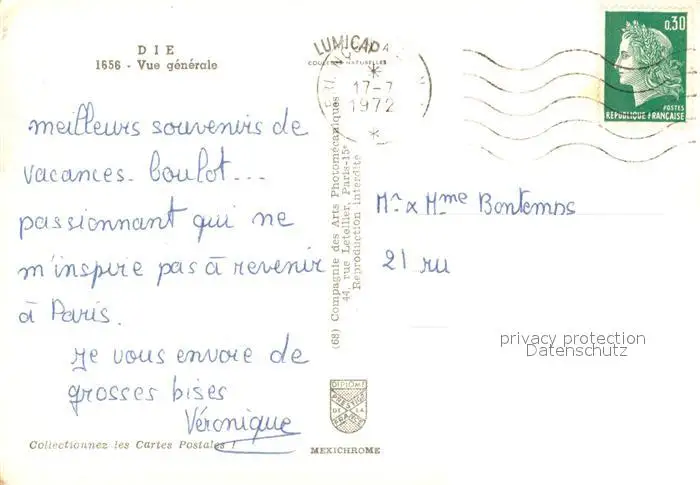 DIE
1656 - Vue générale
meilleurs souvenirs de
vacances. boulot...
passionnant qui ne
m'inspire pas à revenir
à Paris.
Je vous envoie de
grosses bises
Véronique
Collectionnez les Cartes Postales !
LUMICAP
17-7
1972
(68) Compagnie des Arts Photomécaniques
44, rue Letellier, Paris-15e
Reproduction interdite
DIPLÔME
PRESTIGE
DE LA
FRANCE
MEXICHROME
0,30
POSTES
RÉPUBLIQUE FRANÇAISE
Mr & Mme Bontemps
21 ru
privacy protection
Datenschutz